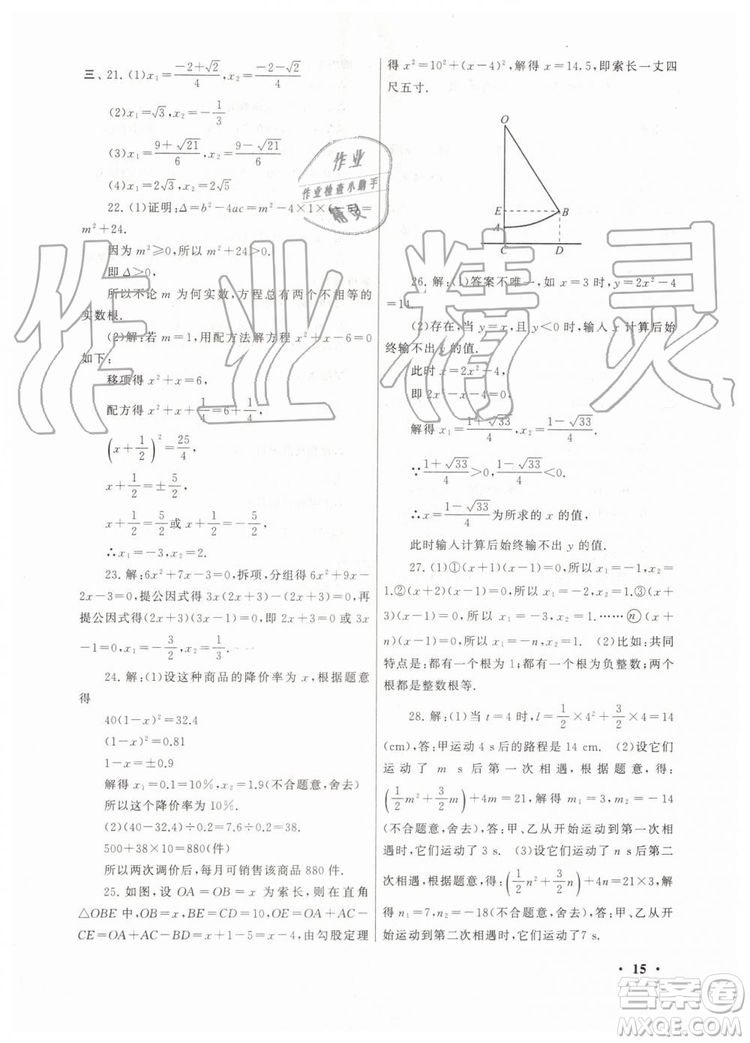 三、21. (1)x₁=(-2+√2)/4, x₂=(-2-√2)/4
(2)x₁=√3, x₂=-1/3
(3)x₁=(9+√21)/6, x₂=(9-√21)/6
(4)x₁=√2, x₂=2√5
22. (1)证明:Δ=b²-4ac=m²-4×1×
m²+24.
因为 m²≥0,所以 m²+24>0.
即 Δ>0.
所以不论 m 为何实数,方程总有两个不相等的
实数根.
(2)解:若 m=1,用配方法解方程 x²+x-6=0
如下:
移项得 x²+x=6,
配方得 x²+x+1/4=6+1/4,
(x+1/2)²=25/4,
x+1/2=±5/2,
x+1/2=5/2或x+1/2=-5/2,
∴x₁=-3,x₂=2.
23. 解:6x²+7x-3=0,拆项,分组得6x²+9x-
2x-3=0,提公因式得3x(2x+3)-(2x+3)=0,再
提公因式得(2x+3)(3x-1)=0,即 2x+3=0,3x-1
=0,x₁=-3/2,x₂=1/3.
24. 解:(1)设这种商品的降价率为 x,根据题意
得
40(1-x)²=32.4
(1-x)²=0.81
1-x=±0.9
解得 x₁=0.1=10%,x₂=1.9(不合题意,舍去)
所以这个降价率为 10%.
(2)(40-32.4)÷0.2=38.
500+38×10=880(件)
所以两次调价后,每月可销售该商品 880 件.
25. 如图,设 OA=OB=x 为索长,则在直角
△OBE 中,x²=OB²=BE²+OE²,
BE=CD=10,OE=OA+AC-
CE=OA+AC-BD=x+1-5=x-4,由勾股定理
得 x²=10²+(x-4)²,解得 x=14.5,即索长一丈四
尺五寸.
O
E
B
A
C
D
26. 解:(1)答案不唯一,如 x=3 时,y=2x²-4
=14.
(2)存在,当 y=x,且 y<0 时,输入 x 计算后始
终输不出 y 的值.
此时 x=2x²-4,
即 2x²-x-4=0.
解得 x₁=(1+√33)/4,x₂=(1-√33)/4.
∵(1+√33)/4>0,(1-√33)/4<0.
∴x=(1-√33)/4为所求的 x 的值,
此时输入计算后始终输不出 y 的值.
27. (1)①(x+1)(x-1)=0,所以 x₁=-1,x₂=
1.②(x+2)(x-1)=0,所以 x₁=-2,x₂=1.③(x+
3)(x-1)=0,所以 x₁=-3,x₂=1.……ⓝ(x+
n)(x-1)=0,所以 x₁=-n,x₂=1. (2)比如:共同
特点是:都有一个根为 1;都有一个根为负整数;两个
根都是整数根等.
28. 解:(1)当 t=4 时,l=1/2×4²+3/2×4=14
(cm),答:甲运动 4 s后的路程是 14 cm. (2)设它们
运动了 m s 后第一次相遇,根据题意,得:
(1/2m²+3/2m)+4m=21,解得 m₁=3,m₂=-14
(不合题意,舍去),答:甲、乙从开始运动到第一次相遇
时,它们运动了 3 s. (3)设它们运动了 n s后第二
次相遇,根据题意,得:(1/2n²+3/2n)+4n=21×3,
解得 n₁=7,n₂=-18(不合题意,舍去),答:甲、乙从开
始运动到第二次相遇时,它们运动了7 s.
• 15 •
作业
作业检查小助手
精灵
作业精灵
答案圈
MXQE.COM